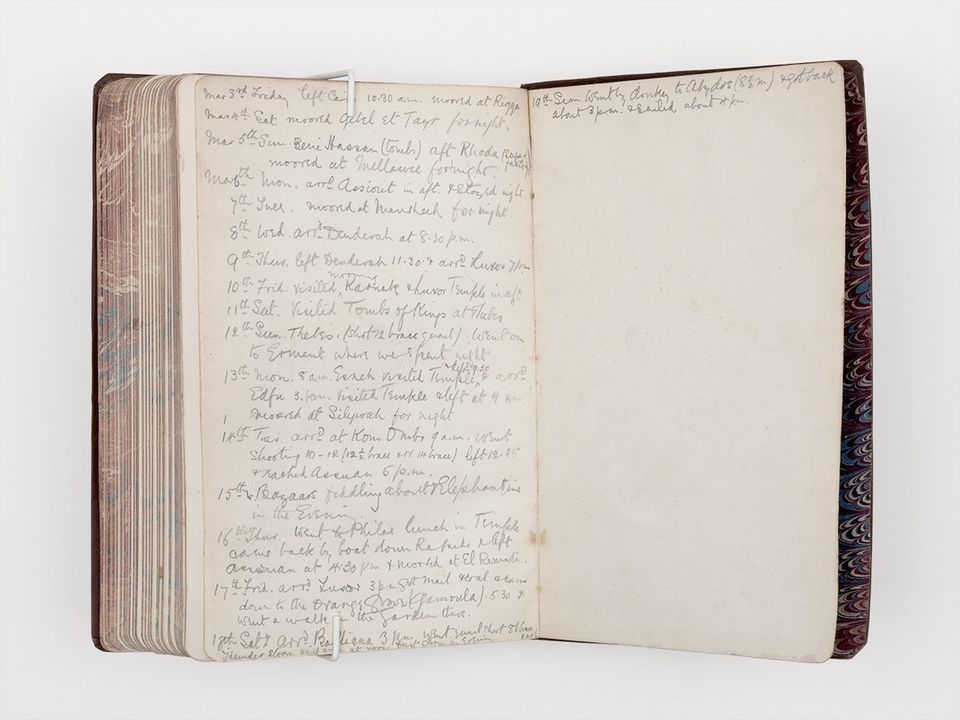 Mar 3rd Friday left Cairo 10.30 a.m. moored at Rigga
Mar 4th Sat. moored Gebel et Tayr for night.
Mar 5th Sun. Beni Hassan (tombs) aft Rhoda (sugar factory)
moored at Mellawie for night.
Mar 6th Mon. arrd Assiout in aft. & stayed night
7th Tues. moored at Mensheeh for night
8th Wed. arrd Denderah at 8.30 p.m.
9th Thur. left Denderah 11.30 & arrd Luxor 7 pm
10th Frid. visited morning Karnak & Luxor Temple in aft
11th Sat. Visited Tombs of Kings at Thebes
12th Sun. Thebes. (Shot 12 brace quail) Went on
to Erment where we spent night
13th Mon. 8 a.m. Esneh visited Temple, left 9.30 & arrd
Edfu 3.pm. visited Temple & left at 4
moored at Silsileh for night
14th Tues. arrd at Kom Ombo 9 a.m. Went
shooting 10-12 (12½ brace 14 brace) left 12.35
& reached Assuan 6 p.m.
15th Bazaars fiddling about & Elephantine
in the Evening.
16th Thur. Went to Philae lunch in Temple
came back by boat down Rapids & left
Assuan at 4.30 pm & moored at El
17th Frid. arrd Luxor 3 pm got mail & coal & came
down to the Orange Grove (Gamoula) - 5.30 &
went a walk in the Garden there.
18th Sat arrd Balliana 3 pm. Went quail shoot 8½ brace
Thunder storm at noon. Dust storm in evening
19th Sun Went by donkey to Abydos (8½ m) & got back
about 3 p.m. & sailed about 4 pm.